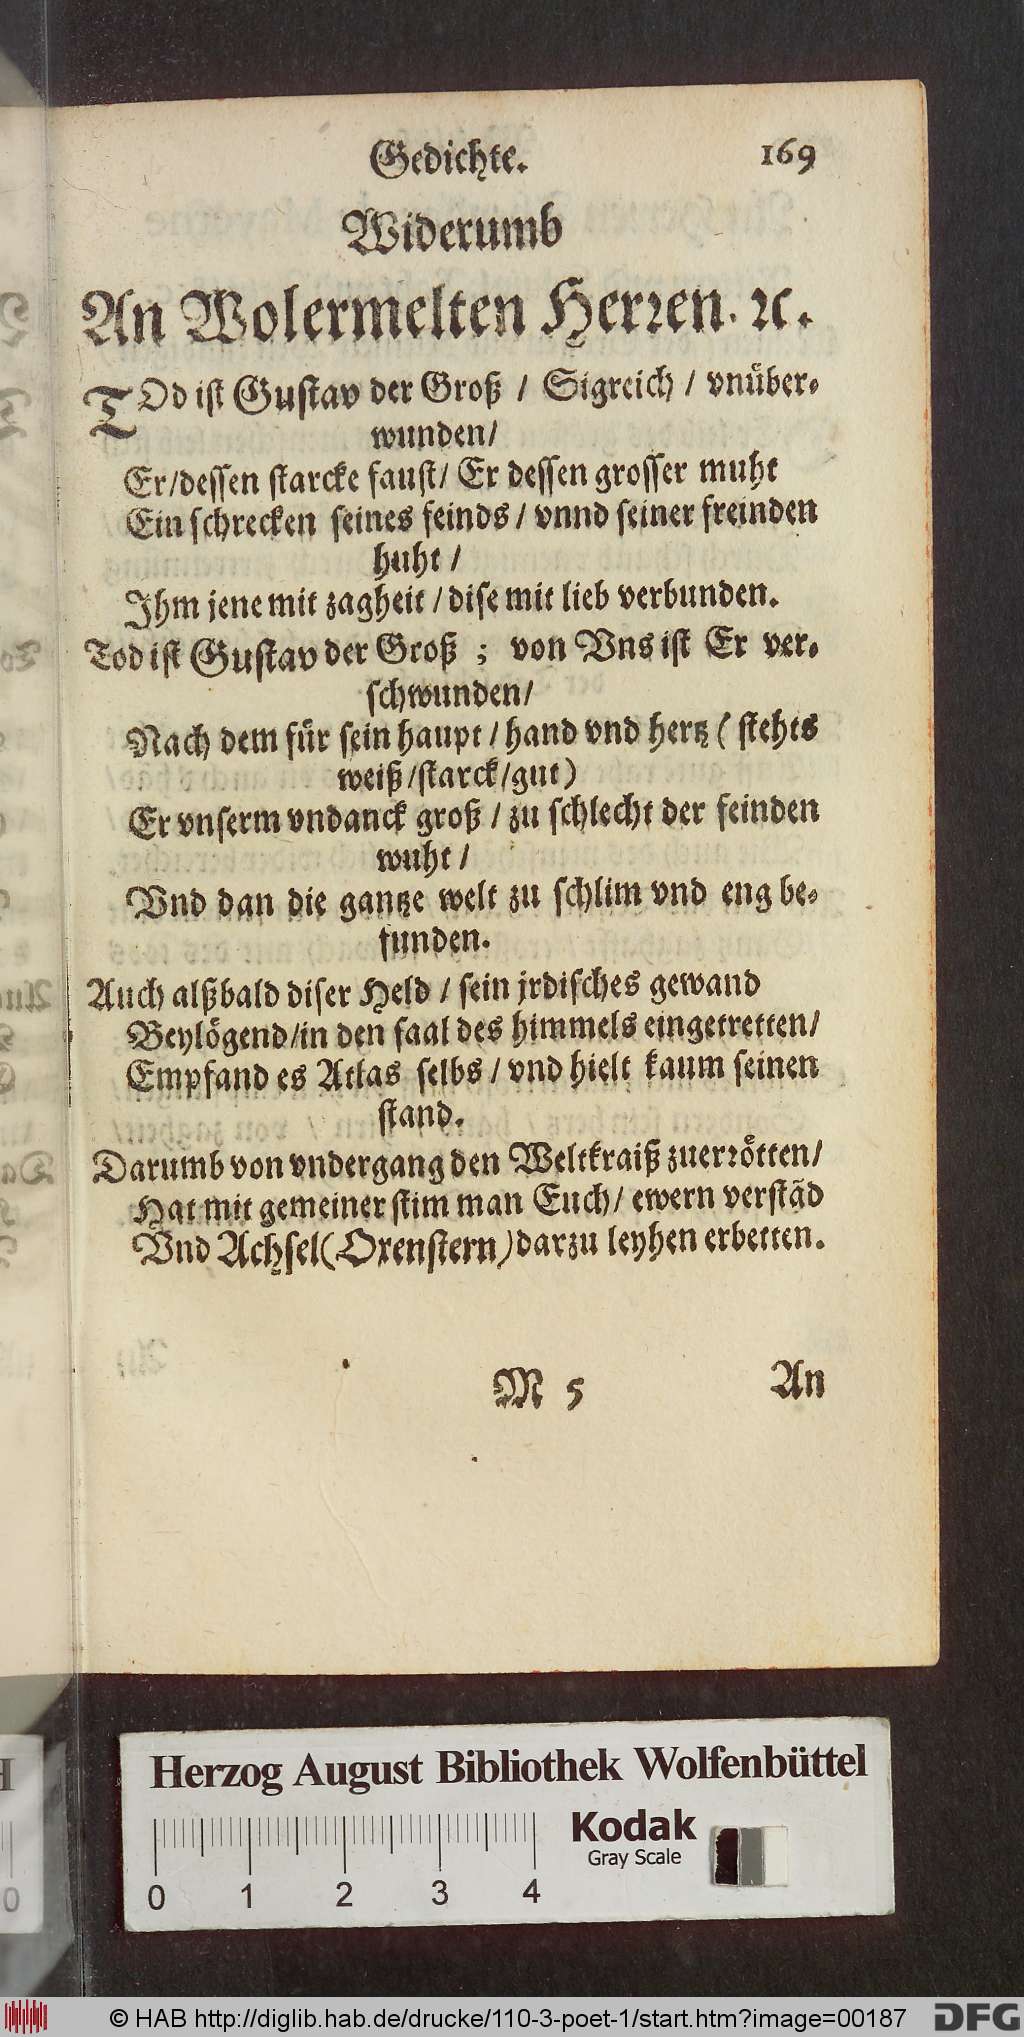 Gedichte. 169
Widerumb
An Wolermelten Herren. ꝛc.
TOd ist Gustav der Groß / Sigreich / vnüber-
wunden/
Er/dessen starcke faust/ Er dessen grosser muht
Ein schrecken seines feinds / vnnd seiner freinden
huht /
Ihm jene mit zagheit / dise mit lieb verbunden.
Tod ist Gustav der Groß ; von Vns ist Er ver-
schwunden/
Nach dem für sein haupt / hand vnd hertz ( stehts
weiß /starck/gut)
Er vnserm vndanck groß / zu schlecht der feinden
wuht /
Vnd dan die gantze welt zu schlim vnd eng be-
funden.
Auch alßbald diser Held / sein jrdisches gewand
Beylögend/in den saal des himmels eingetretten/
Empfand es Atlas selbs / vnd hielt kaum seinen
stand.
Darumb von vndergang den Weltkraiß zuerrötten/
Hat mit gemeiner stim man Euch/ ewern verstãd
Vnd Achsel (Oxenstern) darzu leyhen erbetten.
M 5 An
Herzog August Bibliothek Wolfenbüttel
Kodak
Gray Scale
0 1 2 3 4
© HAB http://diglib.hab.de/drucke/110-3-poet-1/start.htm?image=00187 DFG